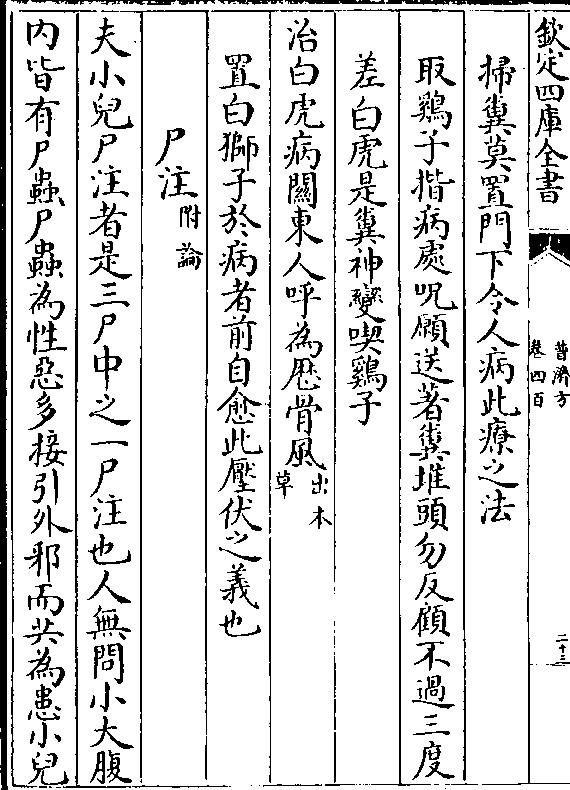 欽定四庫全書
普濟方
卷四百
二十三
掃糞莫置門下令人病此療之法
取鷄子揩病處呪願送著糞堆頭勿反顧不過三度
差白虎是糞神變喫鷄子
治白虎病關東人呼為歴骨風出本草
置白獅子於病者前自愈此壓伏之義也
尸注附論
夫小兒尸注者是三尸中之一尸注也人無問小大腹
内皆有尸蟲尸蟲為性惡多接引外邪而共為患小兒